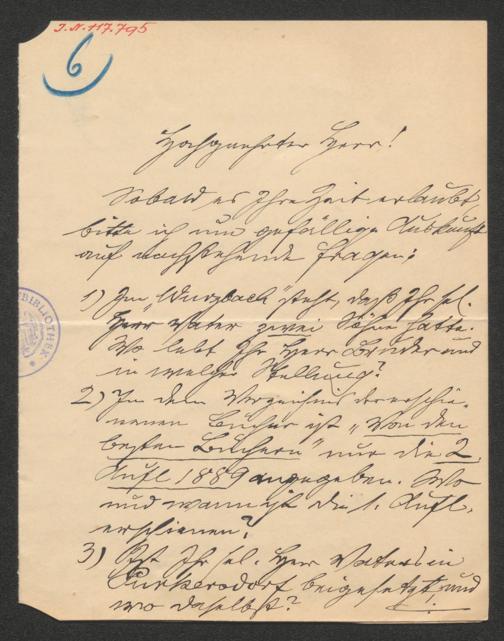 I.N. 117.795
6
Hochgeehrter Herr!
Sobald es Ihre Zeit erlaubt
bitte ich um gefällige Auskunft
auf nachstehende Fragen:
1) Im „Wurzbach" steht, daß Ihr sel.
Herr Vater zwei Söhne hatte.
Wo lebt Ihr Herr Bruder und
in welcher Stellung?
2) In dem Verzeichnis der erschie-
nenen Bücher ist „Von den
besten Büchern" nur die 2.
Aufl. 1889 angegeben. Wo
und wann ist die 1. Aufl.
erschienen?
3) Ist Ihr sel. Herr Vater in
Purkersdorf beigesetzt und
wo daselbst?
BIBLIOTHEK